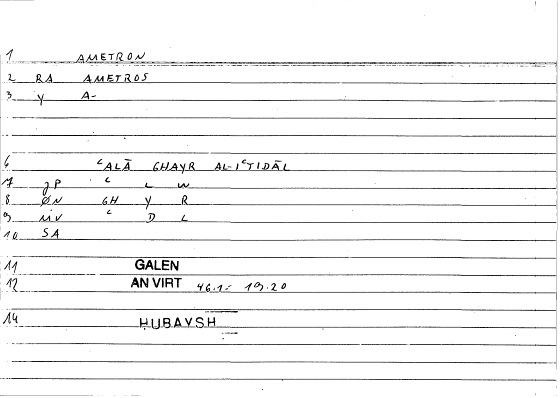 1 AMETRON
2 RA AMETROS
3 y A-
6 ʿALĀ GHAYR AL-IʿTIDĀL
7 JP ʿ L W
8 ØN GH Y R
9 NV ʿ D L
10 SA
11 GALEN
12 AN VIRT 46.1= 19.20
14 ḤUBAYSH